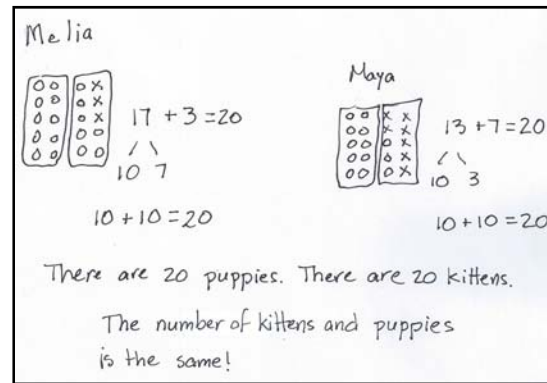 Melia
17 + 3 = 20
10 7
10 + 10 = 20
Maya
13 + 7 = 20
10 3
10 + 10 = 20
There are 20 puppies. There are 20 kittens.
The number of kittens and puppies
is the same!